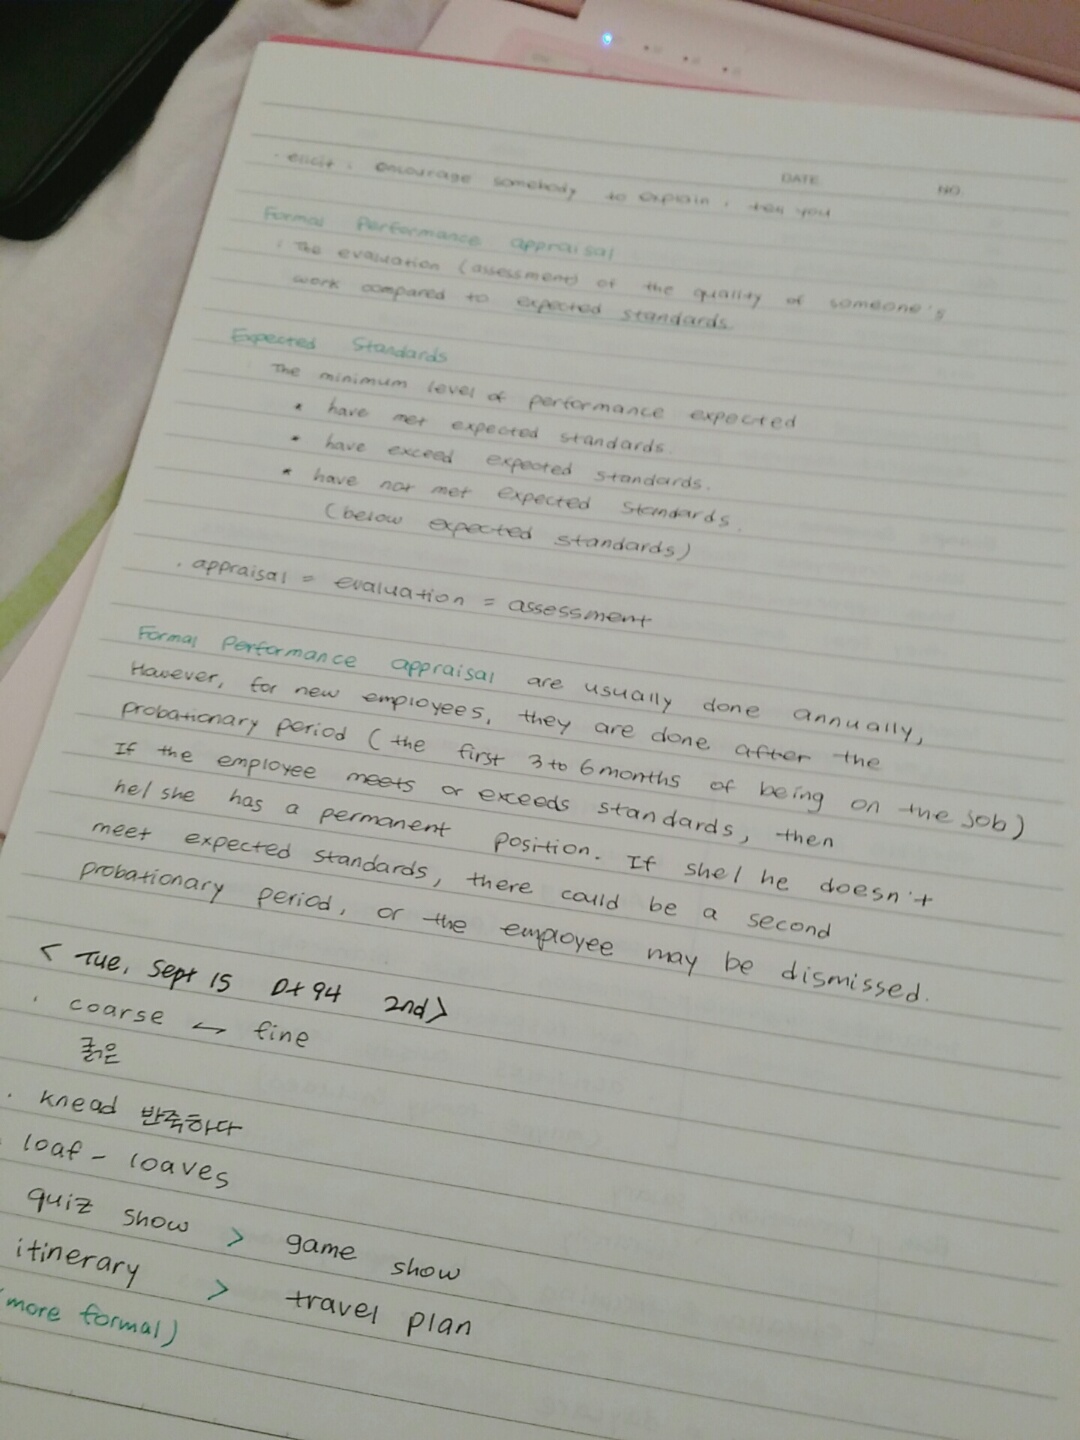 DATE NO.
· elicit : encourage somebody to explain, tell you
Formal Performance appraisal
: The evaluation (assessment) of the quality of someone's
work compared to expected standards.
Expected Standards
The minimum level of performance expected
* have met expected standards.
* have exceed expected standards.
* have not met expected standards.
(below expected standards)
· appraisal = evaluation = assessment
Formal Performance appraisal are usually done annually,
However, for new employees, they are done after the
probationary period (the first 3 to 6 months of being on the job)
If the employee meets or exceeds standards, then
he/she has a permanent position. If she/he doesn't
meet expected standards, there could be a second
probationary period, or the employee may be dismissed.
< Tue, Sept 15 D+94 2nd>
· coarse ↔ fine
굵은
· knead 반죽하다
· loaf - loaves
quiz show > game show
itinerary > travel plan
(more formal)